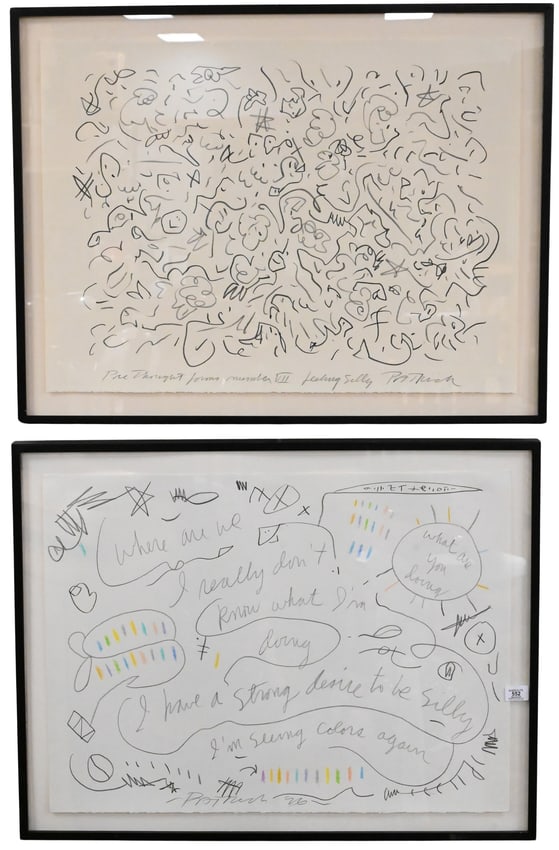 Pure Thought forms, number VII feeling Silly
where are we
I really don't
know what I'm
doing
what are
you
doing
I have a strong desire to be silly
I'm seeing colors again
552